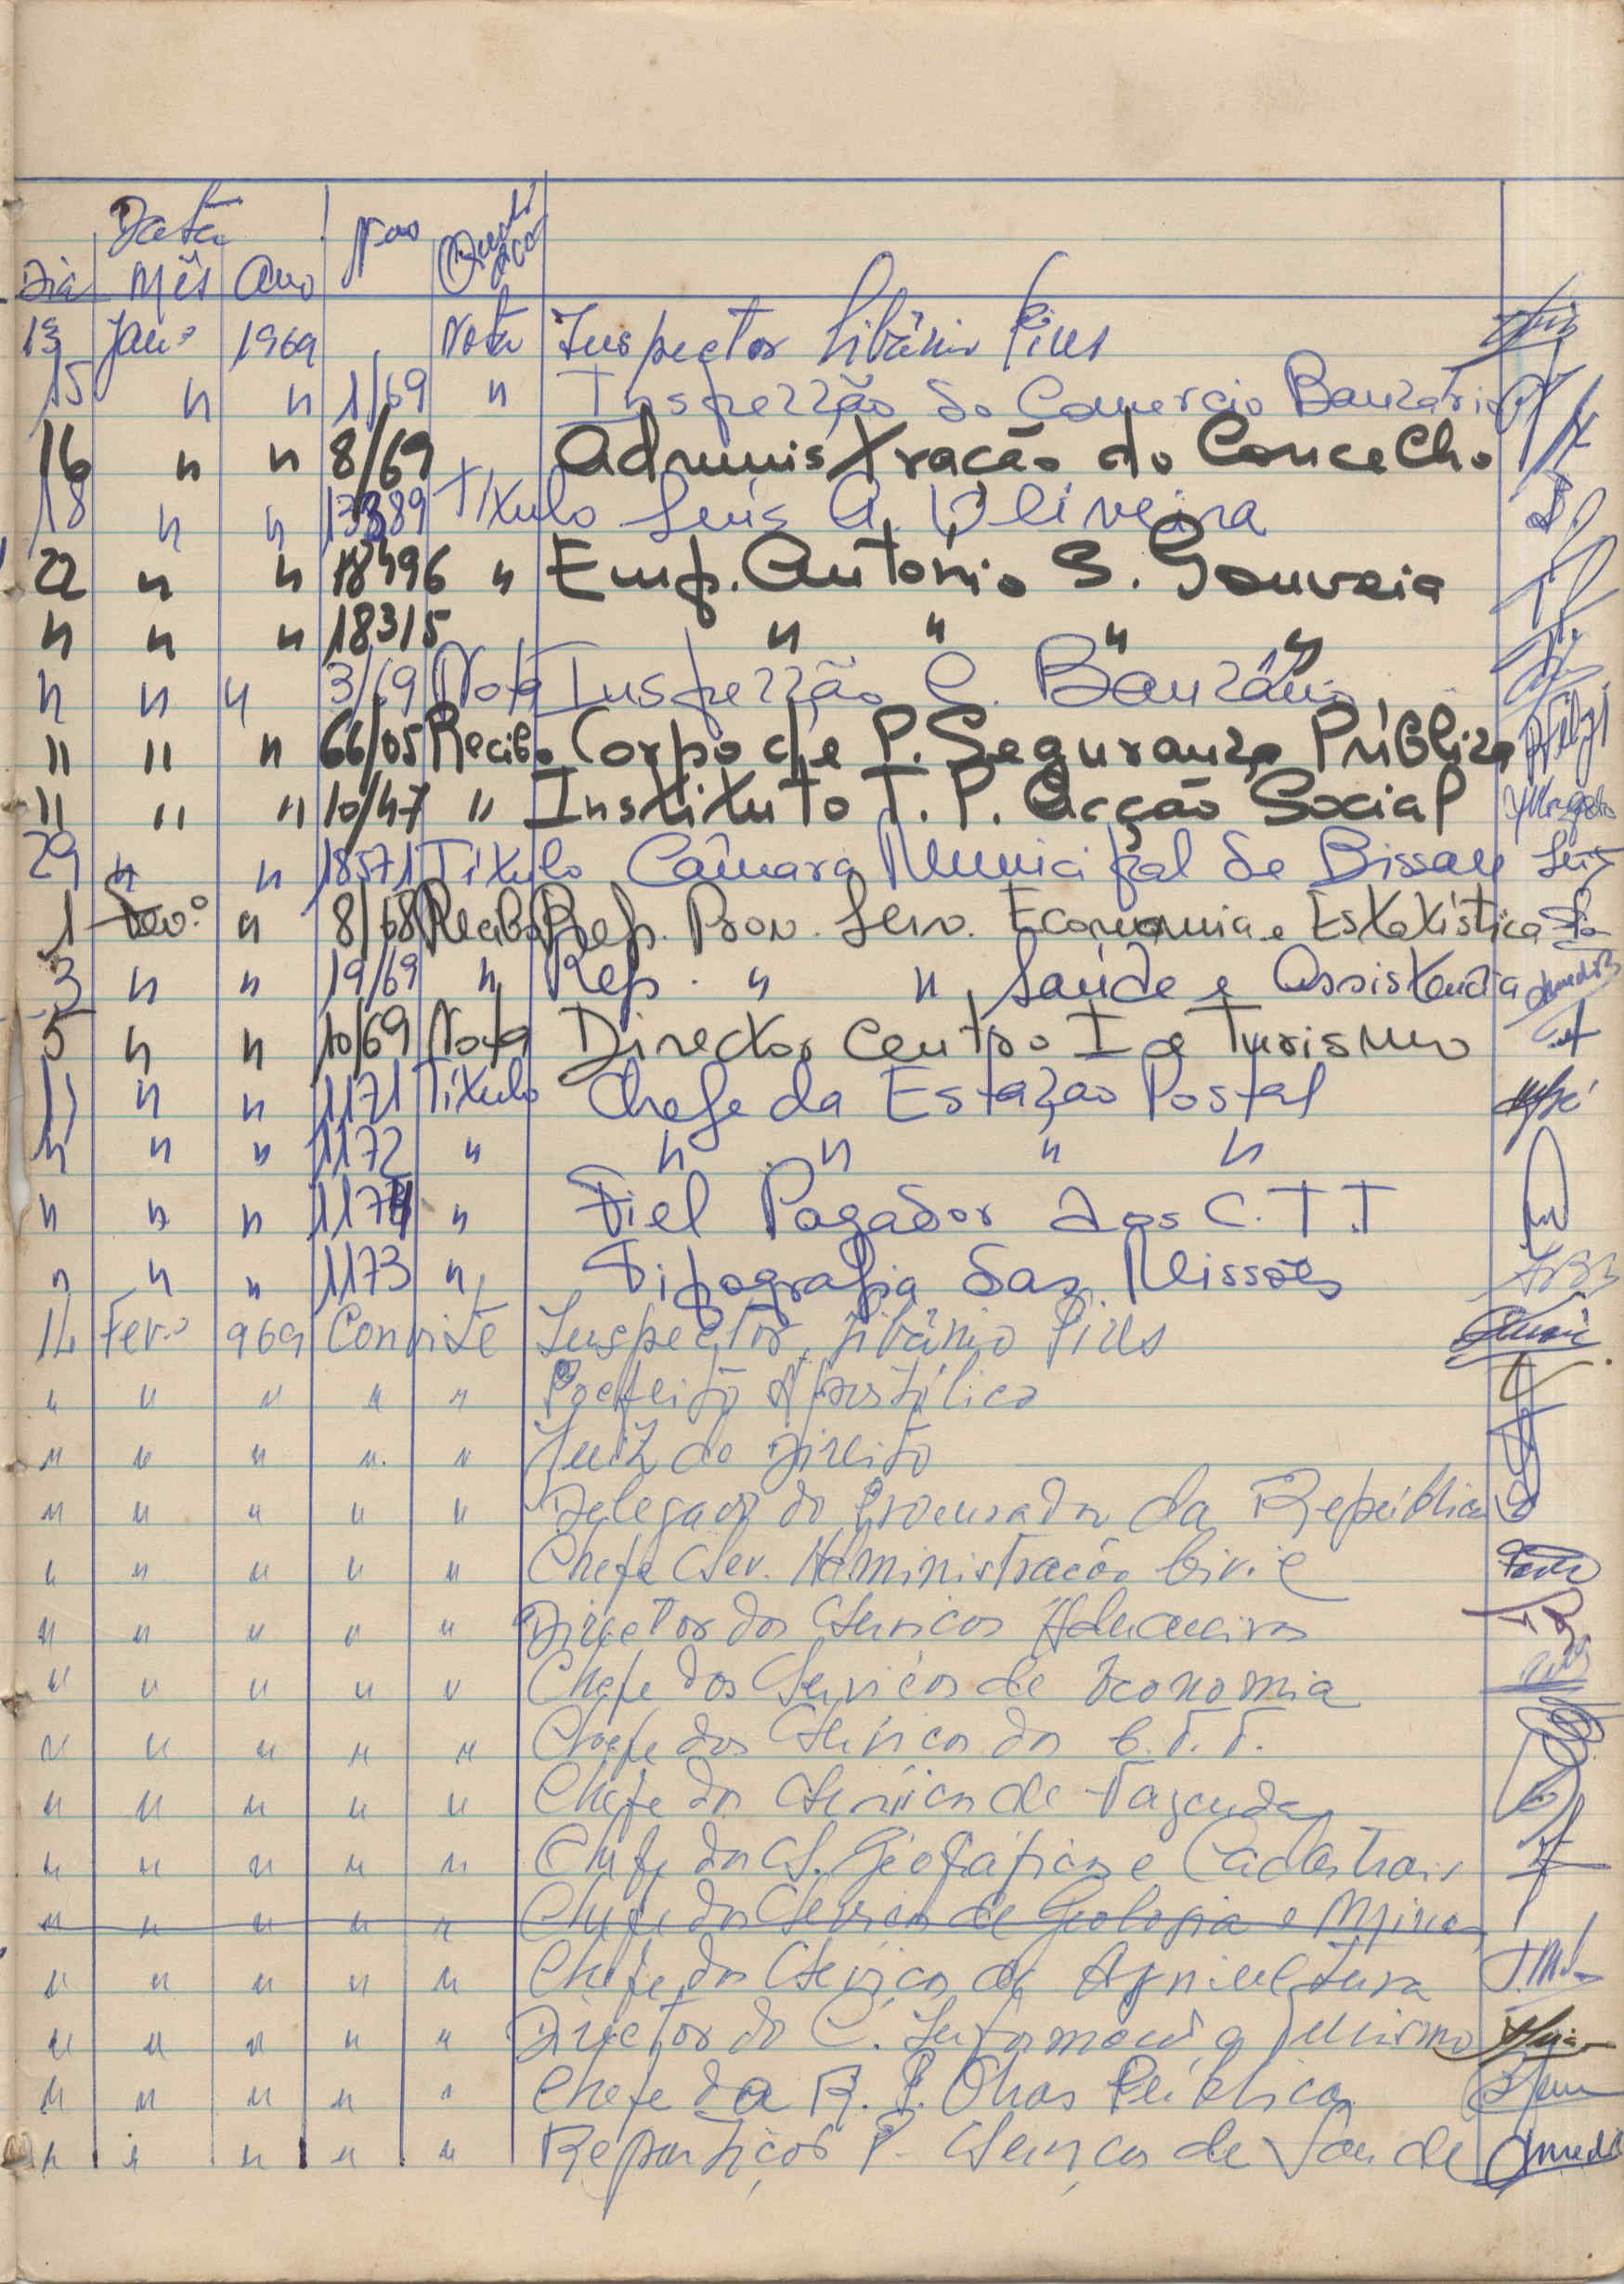 Data Nº
Dia Mês Ano
13 Jan.º 1969 Nota Inspector Libânio Pires
15 " " 1/69 " Inspecção do Comercio Bancário
16 " " 8/69 Administração do Concelho
18 " " 13389 Titulo Luís A. Oliveira
22 " " 18496 " Emp. António S. Gouveia
" " " 18315 " " " "
" " " 3/69 Nota Inspecção C. Bancário
" " " 66/05 Recibo Corpo de P. Segurança Pública
" " " 10/47 " Instituto T. P. Acção Social
29 " " 18571 Título Câmara Municipal de Bissau
1 Fev.º " 8/68 Recibo Rep. Prov. Serv. Economia e Estatística
3 " " 19/69 " Rep. " " Saúde e Assistencia
5 " " 10/69 Nota Director Centro I e Turismo
11 " " 1171 Titulo Chefe da Estação Postal
" " " 1172 " " " " "
" " " 1174 " Fiel Pagador dos C.T.T
" " " 1173 " Tipografia das Missões
14 Fev.º 969 Convite Inspector, Libânio Pires
" " " " " Prefeito Apostólico
" " " " " Juiz de Direito
" " " " " Delegado do Procurador da República
" " " " " Chefe Serv. Administração Civil
" " " " " Director dos Serviços Aduaneiros
" " " " " Chefe dos Serviços de Economia
" " " " " Chefe dos Serviços dos C.T.T.
" " " " " Chefe dos Serviços de Fazenda
" " " " " Chefe dos S. Geográficos e Cadastrais
" " " " " Chefe dos Serviços de Geologia e Minas
" " " " " Chefe dos Serviços de Agricultura
" " " " " Director do C. Informação e Turismo
" " " " " Chefe da R. P. Obras Públicas
" " " " " Repartiços P. Serviços de Saude